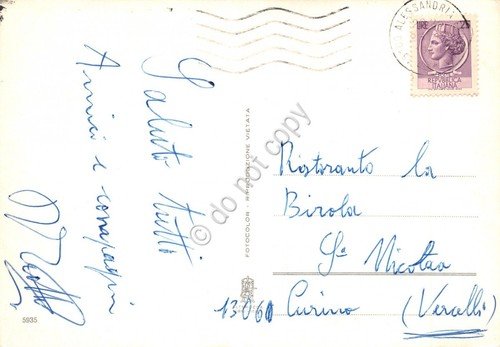 Saluto tutti
Amici e compagni
ALESSANDRIA
LIRE 25
REPUBBLICA
ITALIANA
Ristorante la
Birola
Sª Nicolao
13060 Curino (Vercelli)
FOTOCOLOR - RIPRODUZIONE VIETATA
5935
do not copy